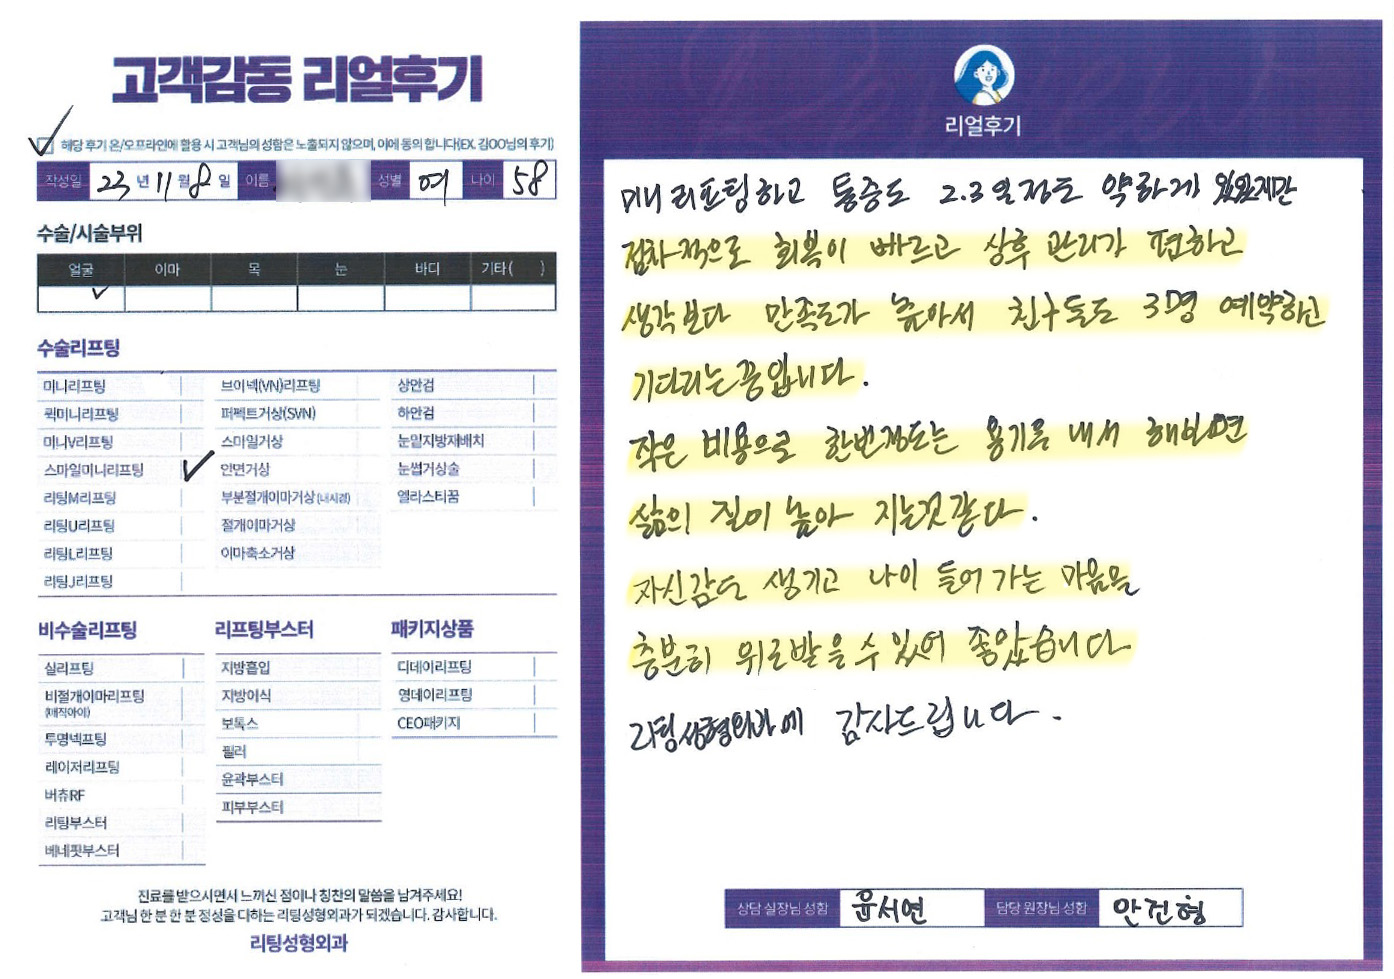 고객감동 리얼후기
해당 후기 온/오프라인에 활용 시 고객님의 성함은 노출되지 않으며, 이에 동의 합니다(EX. 김OO님의 후기)
작성일 23년 11월 8일 이름 성별 여 나이 58
수술/시술부위
얼굴 이마 목 눈 바디 기타( )
수술리프팅
미니리프팅 브이넥(VN)리프팅 상안검
퀵미니리프팅 퍼펙트거상(SVN) 하안검
미니V리프팅 스마일거상 눈밑지방재배치
스마일미니리프팅 안면거상 눈썹거상술
리팅M리프팅 부분절개이마거상(내시경) 엘라스티꿈
리팅U리프팅 절개이마거상
리팅L리프팅 이마축소거상
리팅J리프팅
비수술리프팅 리프팅부스터 패키지상품
실리프팅 지방흡입 디데이리프팅
비절개이마리프팅 지방이식 영데이리프팅
(매직아이)
투명넥프팅 보톡스 CEO패키지
레이저리프팅 필러
버츄RF 윤곽부스터
리팅부스터 피부부스터
베네핏부스터
진료를 받으시면서 느끼신 점이나 칭찬의 말씀을 남겨주세요!
고객님 한 분 한 분 정성을 다하는 리팅성형외과가 되겠습니다. 감사합니다.
리팅성형외과
리얼후기
미니 리프팅하고 통증도 2.3일정도 약하게 있었지만
점차적으로 회복이 빠르고 상후 관리가 편하고
생각보다 만족도가 높아서 친구들도 3명 예약하고
기다리는중입니다.
작은 비용으로 한번정도는 용기를 내서 해보면
삶의 질이 높아 지는것 같다.
자신감도 생기고 나이 들어 가는 마음을
충분히 위로받을 수 있어 좋았습니다
리팅성형외과에 감사드립니다.
상담 실장님 성함 윤서연 담당 원장님 성함 안건형